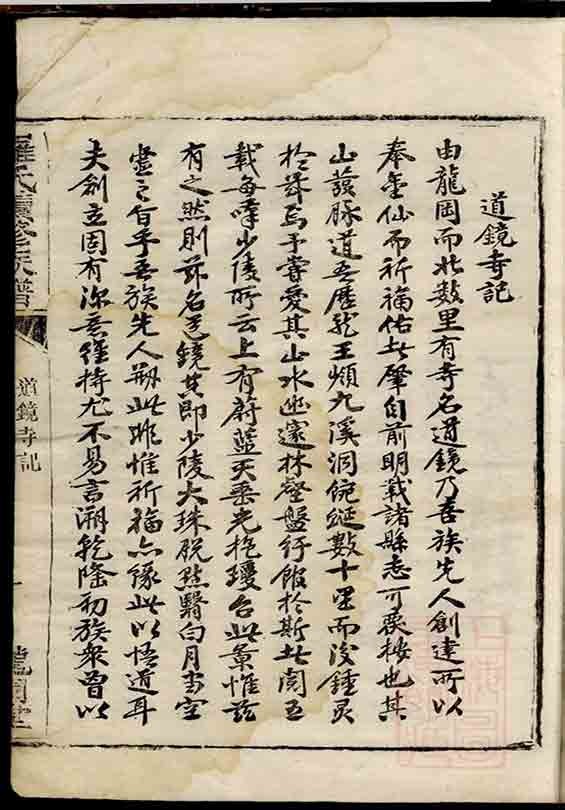 道鏡寺記
由龍岡而北數里有寺名道鏡乃吾族先人創建所以
奉金仙而祈福佑者肇自前明載諸縣志可覆按也其
山發脉道吾歷龍王頫九溪洞蜿蜒數十里而後鍾靈
於茲焉予嘗愛其山水幽邃林壑盤紆館於斯者閱五
載每嘆少陵所云上有蔚藍天垂光抱瓊台此景惟茲
有之然則茲名道鏡其即少陵大珠脫玷翳白月當空
虛之旨乎吾族先人剏此非惟祈福亦緣此以悟道耳
夫創立固有深意維持尤不易言溯乾隆初族衆曾以
羅氏續修族譜
道鏡寺記
一